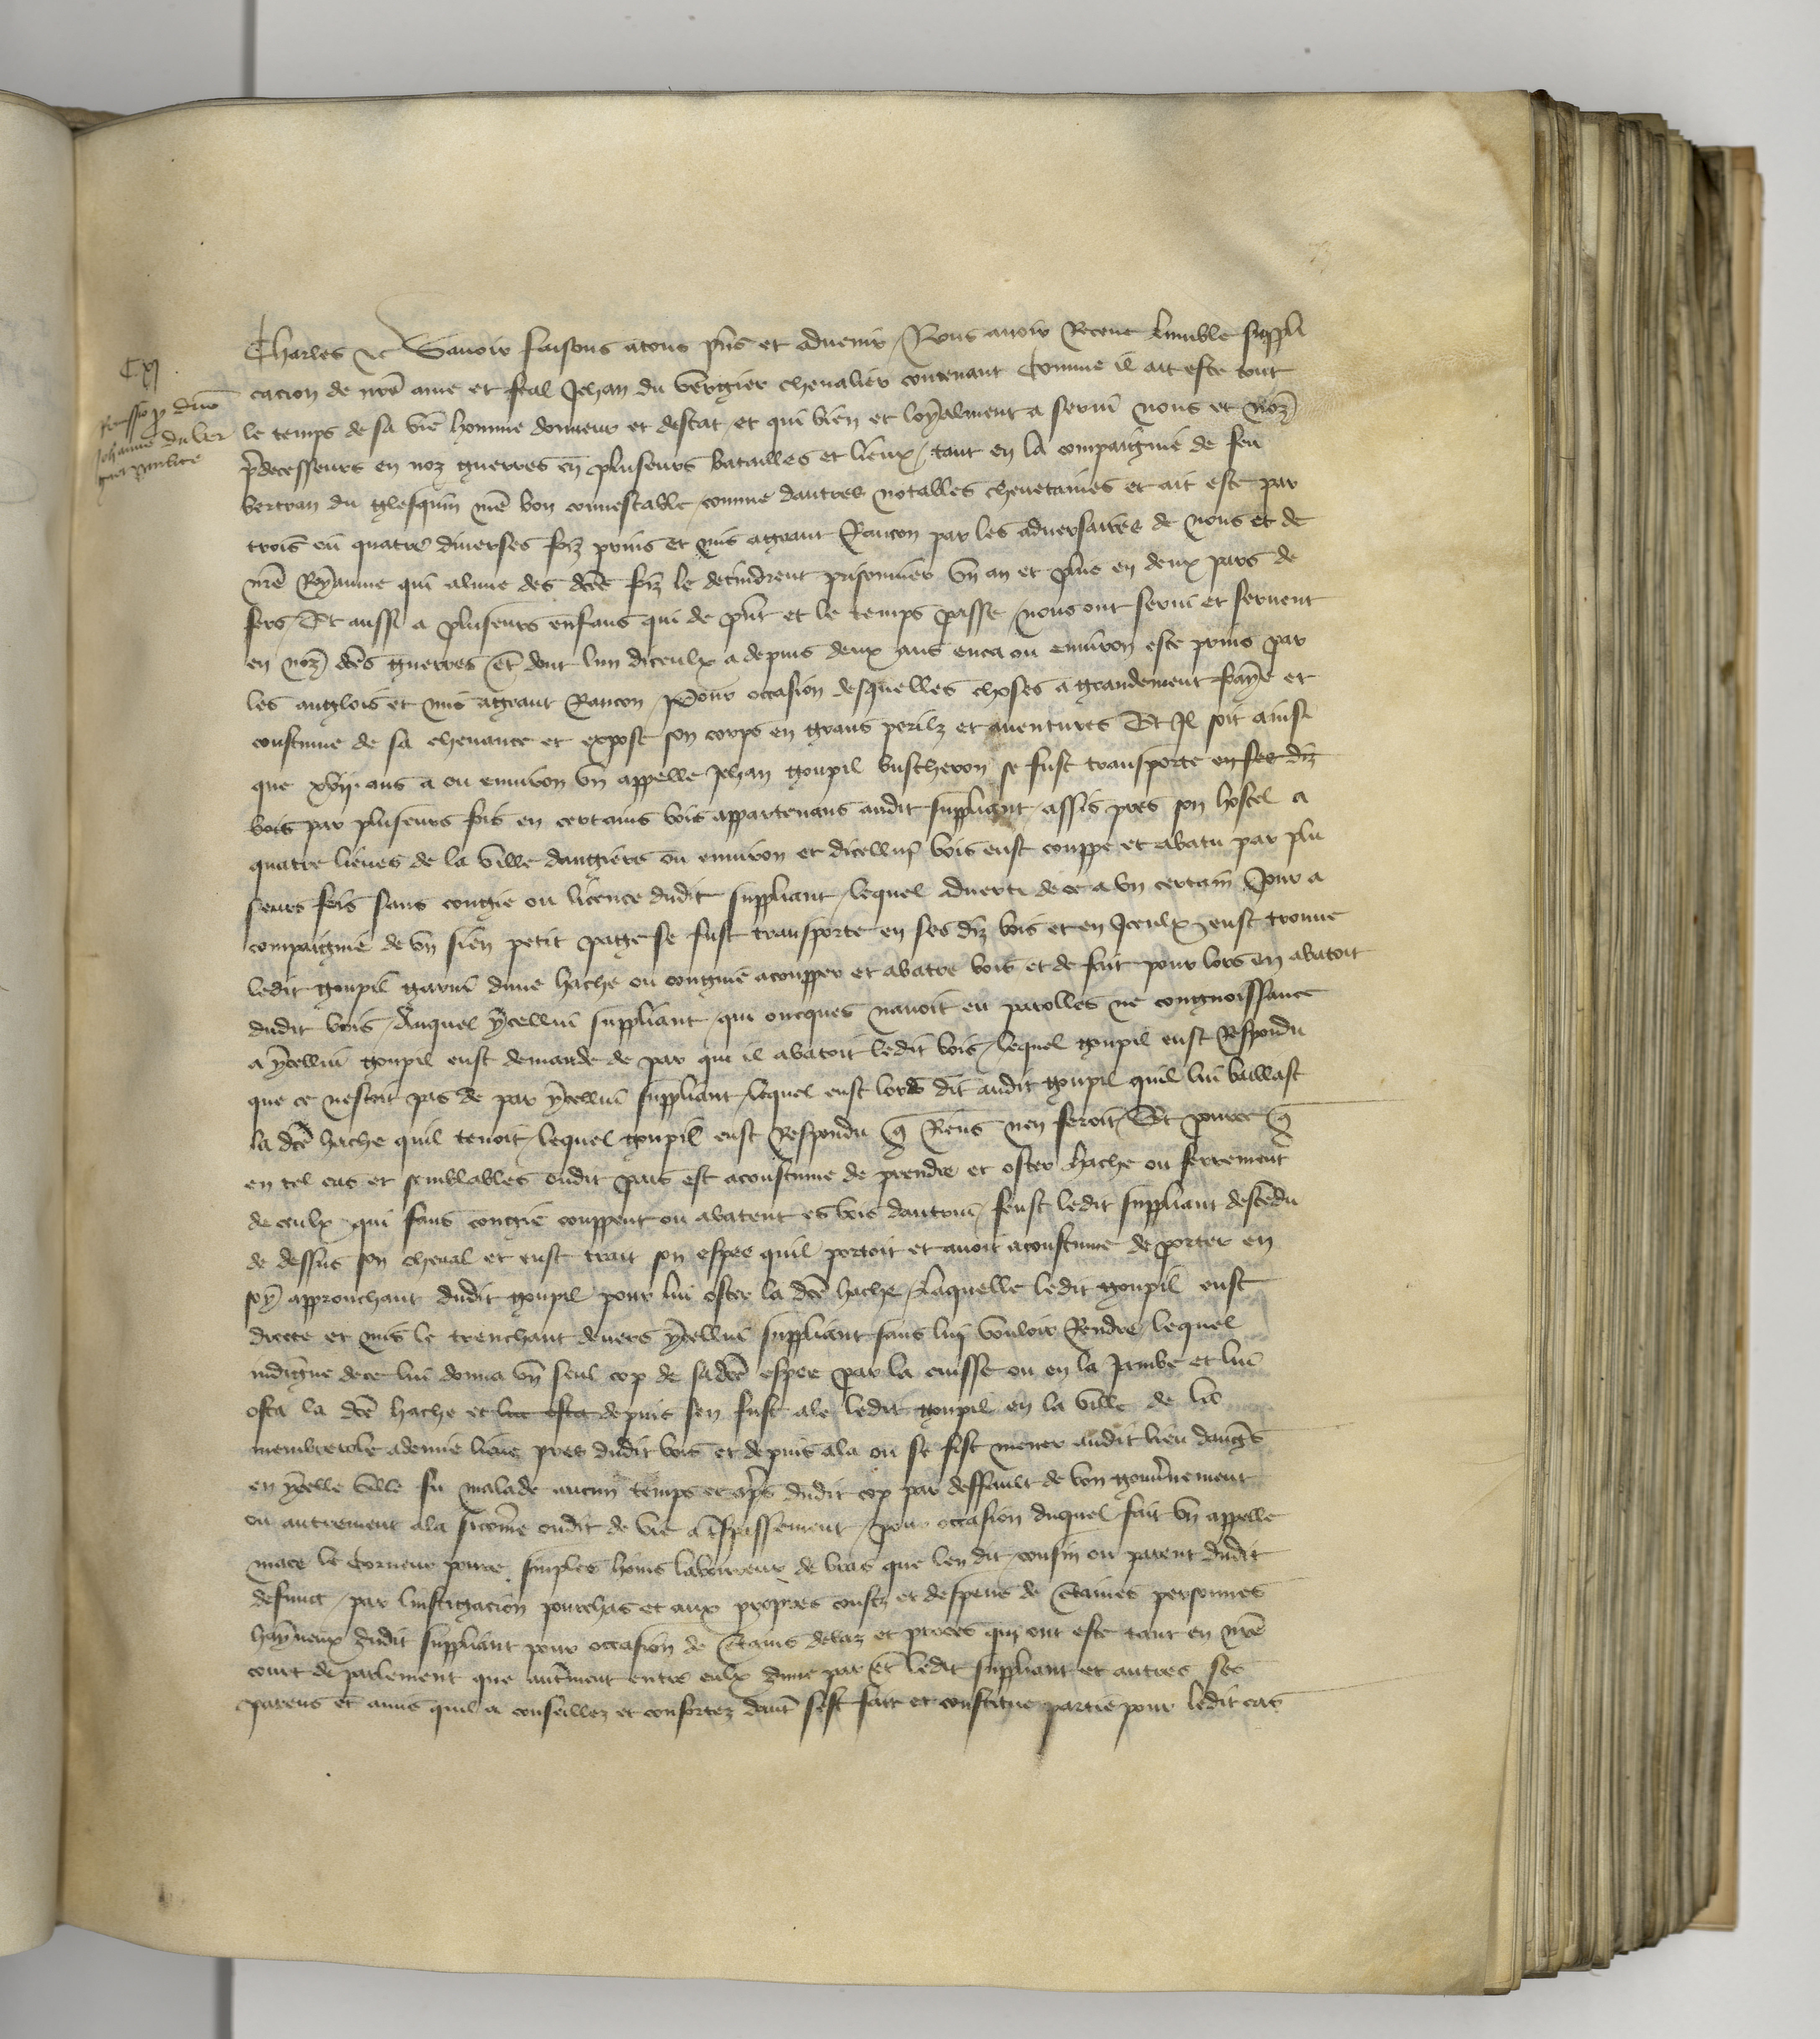 CXJ.
Remissio p duo
Johanne du Ver
gier milite
Charles etc Savoir faisons atous pns et advenir / Nous avoir Receue lumble suppli
cacion de nre ame et feal Jehan du Vergier chevalier contenant Comme il ait este tout
le temps de sa vie homme donneur et destat / et qui bien et loyalment a servi nous et noz
pdecesseurs en noz guerres en pluseurs batailles et lieux / tant en la compaignie de feu
bertran du glesquin nre bon connestable / comme dautres notables chevetaines et ait este par
trois ou quatre diverses foiz prins et mis agrant Rancon par les adversaires de nous et de
nre Royaume qui alune des dces foiz le detindrent prisonnier un an et plus en deux pars de
fers / Et aussi a pluseurs enfans qui de pnt et le temps passe / nous ont servi et servent
en noz dces guerres Et dont lun diceulx a depuis deux ans enca ou environ este prins par
les anglois et mis agrant Rancon / Pour occasion desquelles choses a grandement fraye et
consume de sa chevance et expose son corps en grans perilz et aventures Et Il soit ainsi
que xvij. ans a ou environ un appelle Jehan goupil buscheron se fust transporte en ses diz
bois par pluseurs fois en certains bois appartenans audit suppliant / assis pres son hostel a
quatre lieues de la ville dangiers ou environ et dicellui bois eust couppe et abatu par plu
seurs fois sans congie ou licence dudit suppliant / lequel adverti de ce a un certain Jour a
compaignie de un sien petit page se fust transporte en ses diz bois et en Jceulx eust trouve
ledit goupil garni dune hache ou congnie acoupper et abatre bois et de fait pour lors en abatoit
dudit bois / Auquel ycellui suppliant / qui oncques navoit eu parolles ne congnoissance
a ycellui goupil eust demande de par qui il abatoit ledit bois / lequel goupil eust Respondu
que ce nestoit pas de par ycellui suppliant / lequel eust lors dit audit goupil quil lui baillast
la dce hache quil tenoit / lequel goupil eust Respondu q Riens nen feroit / Et pource q
en tel cas et semblables oudit pais est acoustume de prendre et oster hache ou ferrement
de ceulx qui sans congie couppent ou abatent es bois dautrui / feust ledit suppliant descedu
de dessus son cheval et eust trait son espee quil portoit et avoit acoustume de porter en
soy approuchant dudit goupil pour lui oster la dce hache / Laquelle ledit goupil eust
drecee et mis le trenchant devers ycellui suppliant sans luy vouloir Rendre / lequel
indigne dece lui donna un seul cop de sadce espee par la cuisse ou en la Jambe et lui
osta la dce hache et lui osta depuis sen fust ale ledit goupil en la ville de
membrerolle ademie lieue pres dudit bois et depuis ala ou se fist mener audit lieu dangs
en ycelle ville fu malade aucun temps et aps dudit cop par deffault de bon gouvnement
ou autrement ala sicome oudit de vie a tspassement / pour occasion duquel fait un appelle
mace le Corneur povre simples homs laboureur de bras que len dit cousin ou parent dudit
defunct / par linstigacion pourchas et aux propres coustz et despens de Ctaines personnes
hayneux dudit suppliant pour occasion de Ctains debaz et proces qui ont este tant en nre
court de parlement que autment entre eulx dune part et ledit suppliant et autres ses
parens et amis quil a conseillez et confortez dautre sest fait et constitue partie pour ledit cas